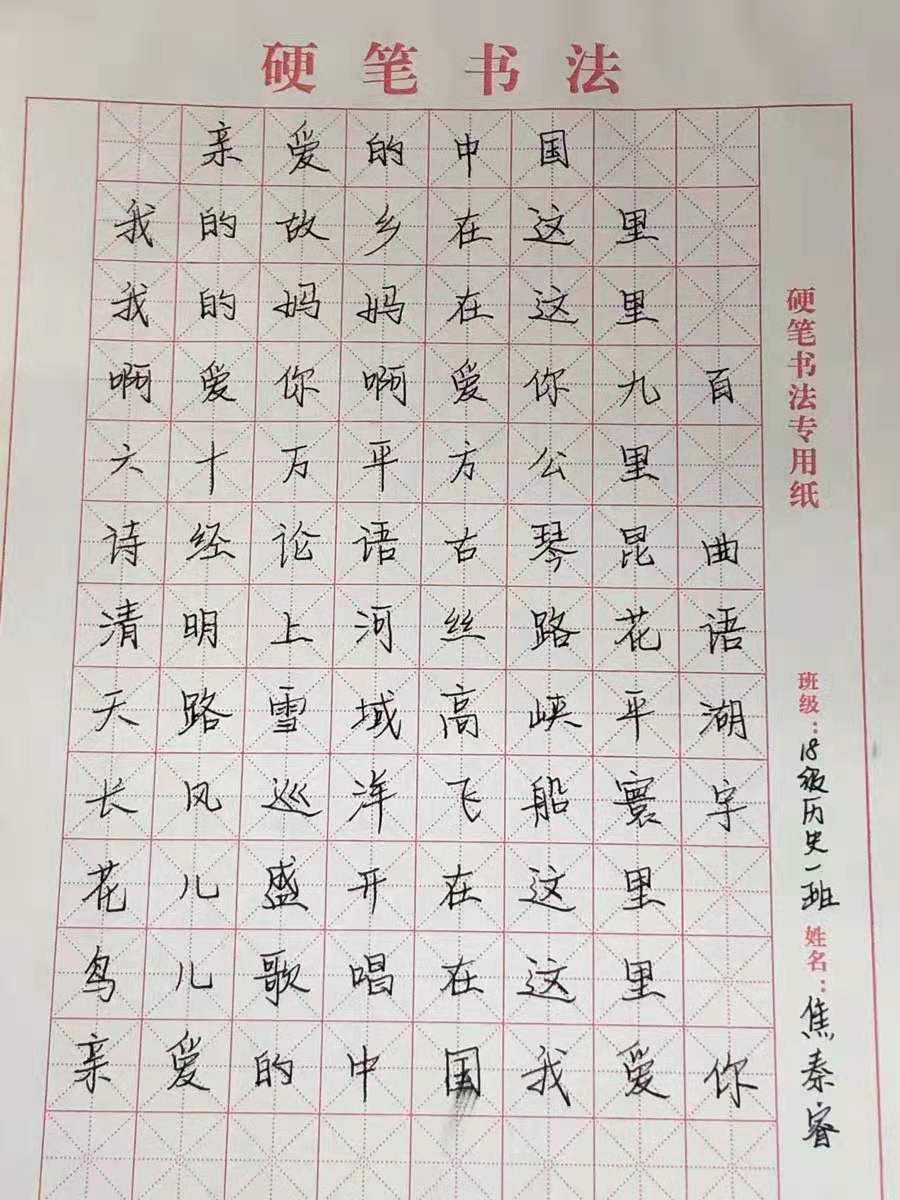 硬笔书法
亲爱的中国
我的故乡在这里
我的妈妈在这里
啊爱你啊爱你九百
六十万平方公里
诗经论语古琴昆曲
清明上河丝路花语
天路雪域高峡平湖
长风巡洋飞船寰宇
花儿盛开在这里
鸟儿歌唱在这里
亲爱的中国我爱你
硬笔书法专用纸
班级：18级历史一班 姓名：焦秦睿